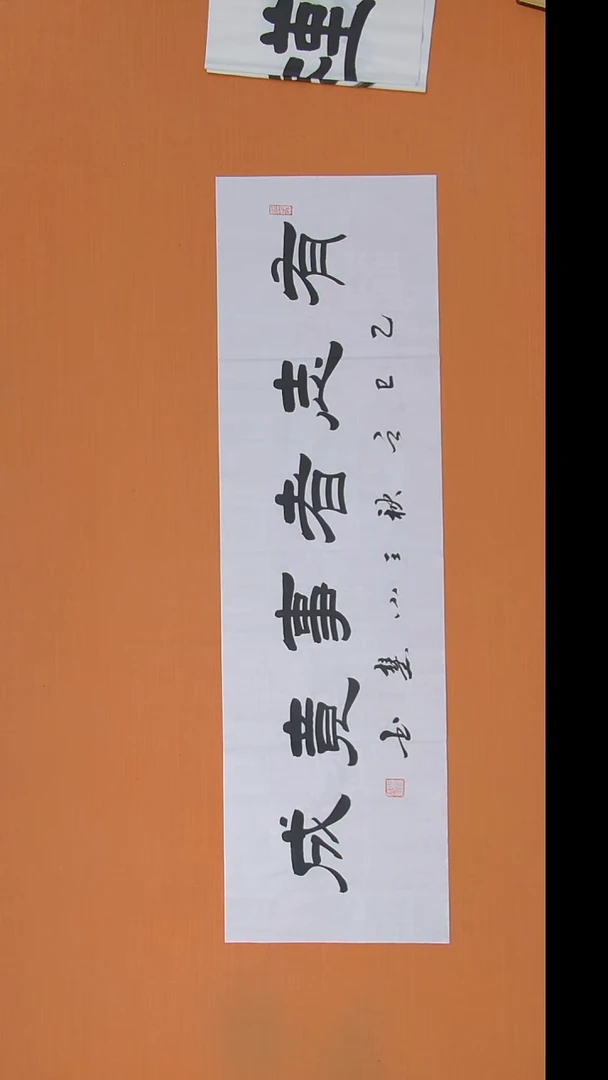 有志者事竟成
乙巳之秋王小慧书